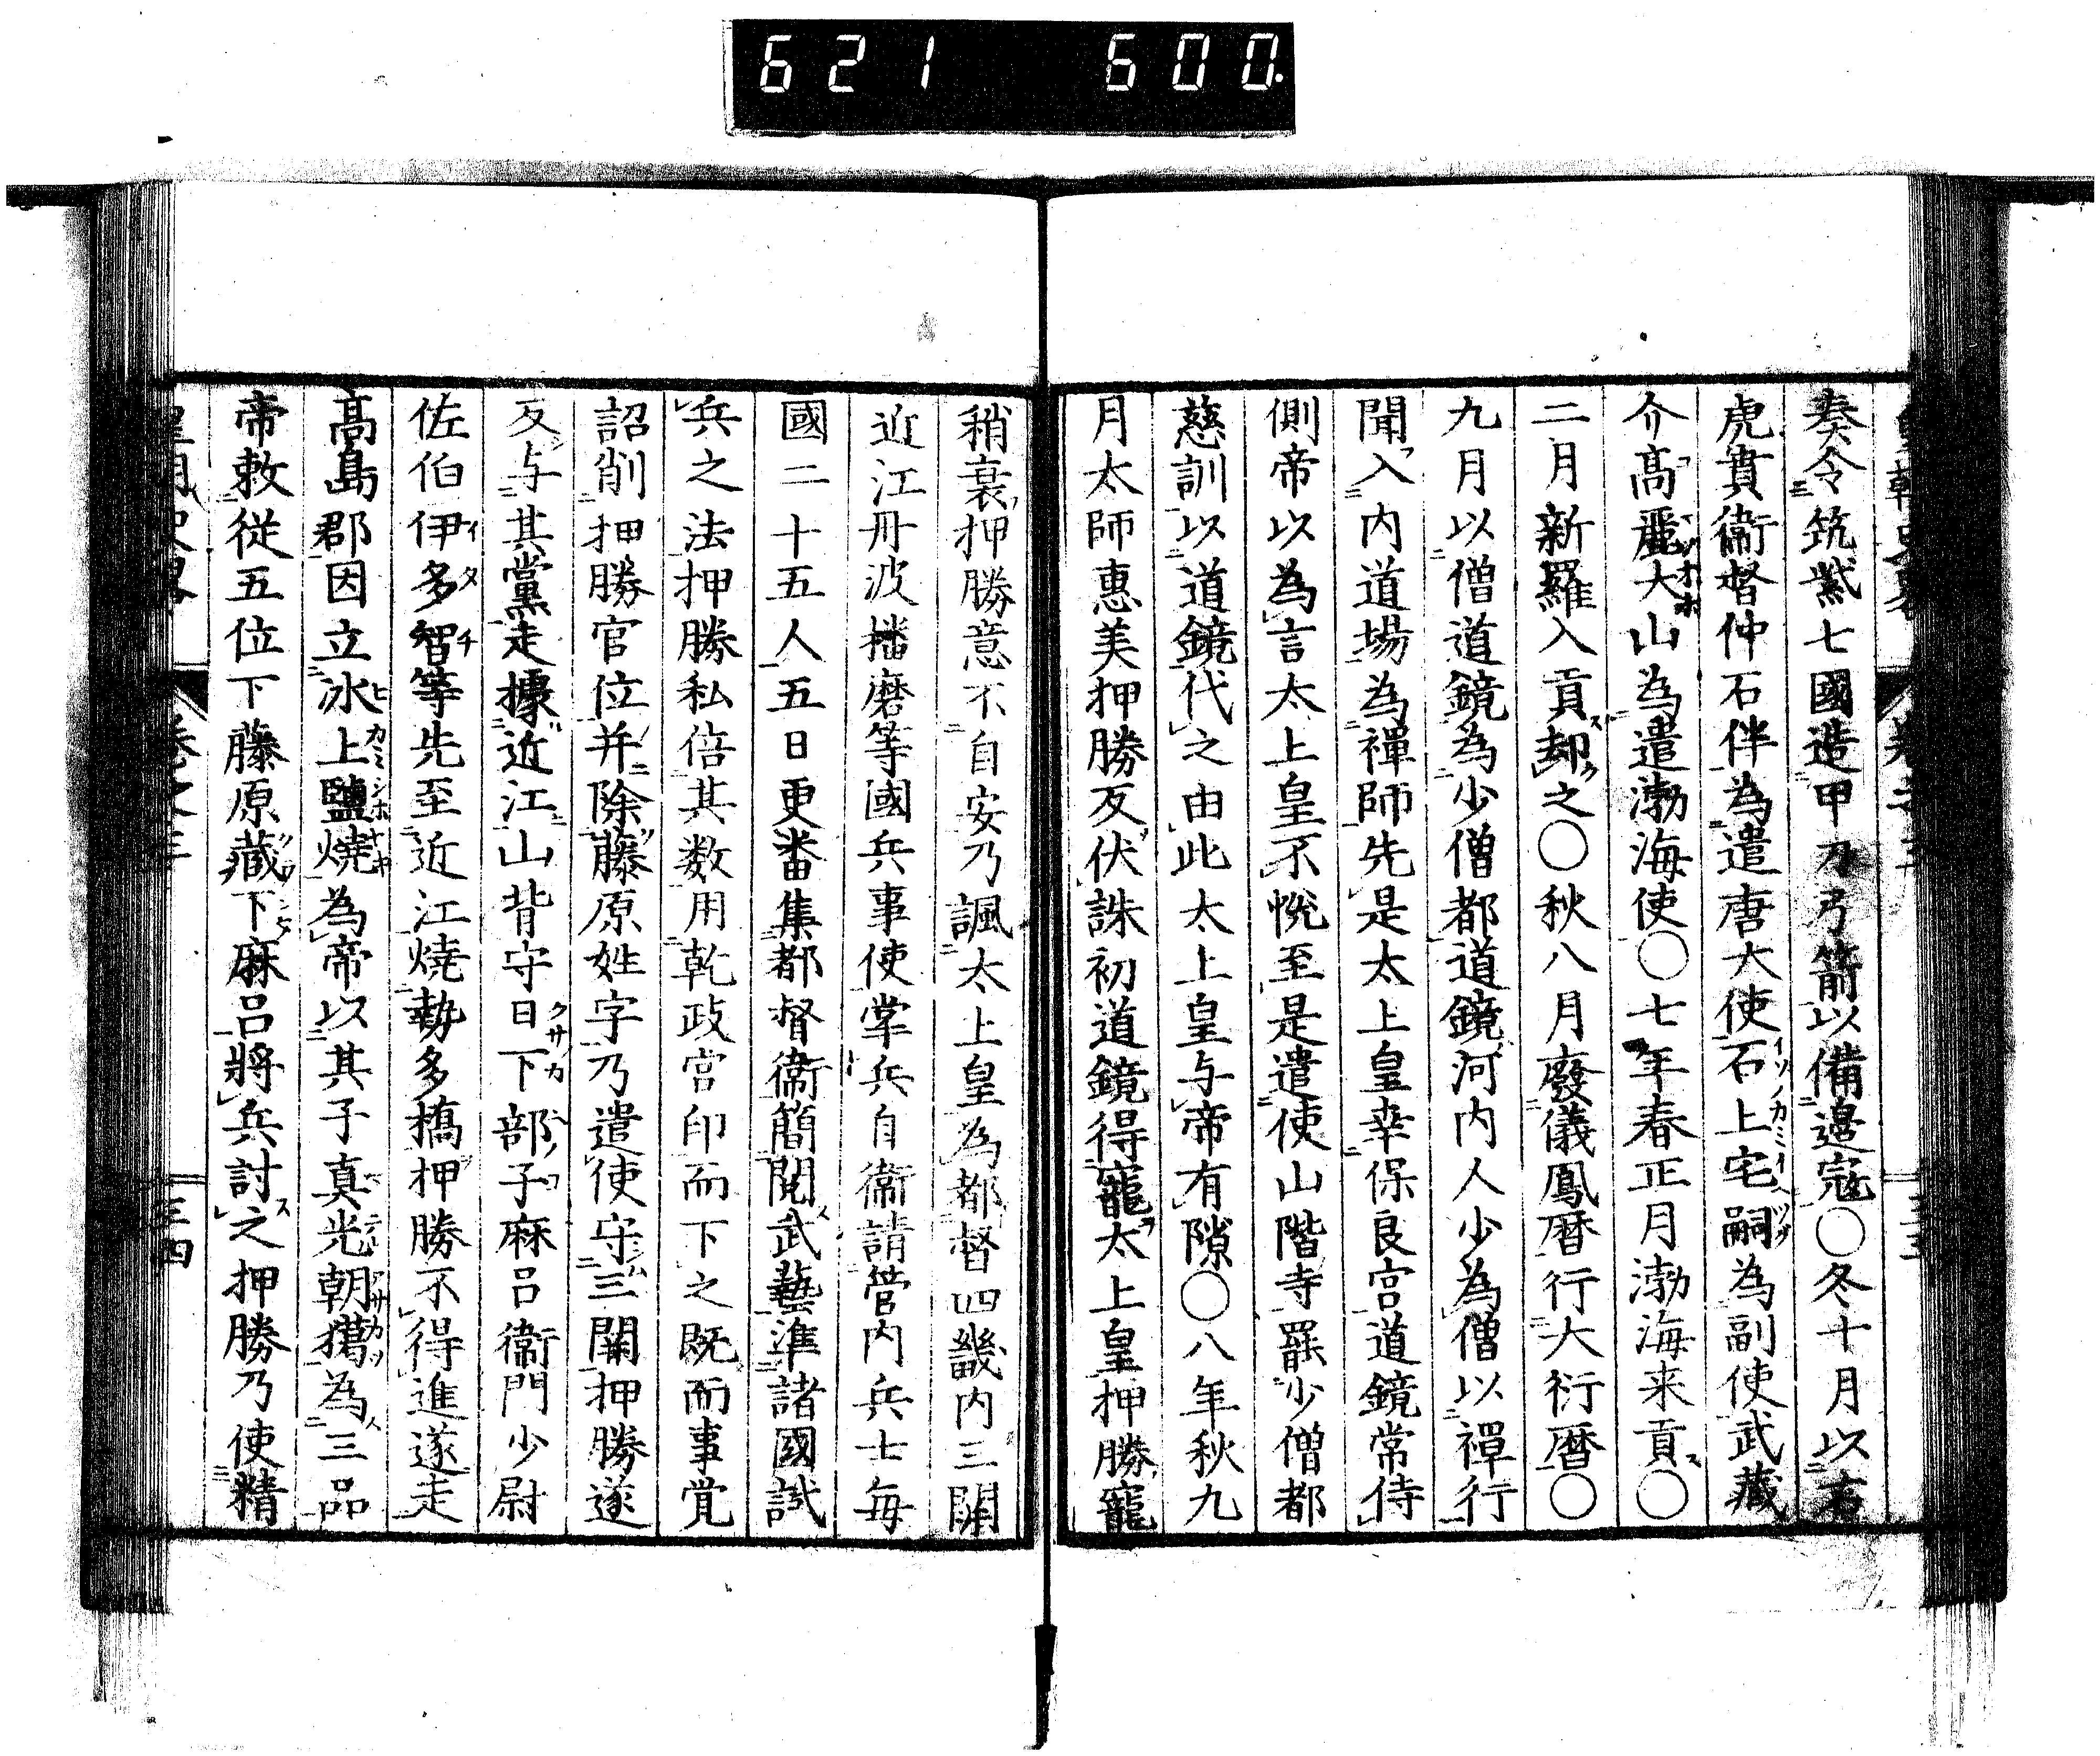 621 600.
奏令筑紫七國造甲刀弓箭以備邊寇〇冬十月以右
虎賁衞督仲石伴為遣唐大使石上宅嗣為副使武藏
介髙麗大山為遣渤海使〇七年春正月渤海来貢〇
二月新羅入貢却之〇秋八月廢儀鳳暦行大衍暦〇
九月以僧道鏡為少僧都道鏡河内人少為僧以禪行
聞入内道場為禪師先是太上皇幸保良宮道鏡常侍
側帝以為言太上皇不悅至是遣使山階寺罷少僧都
慈訓以道鏡代之由此太上皇与帝有隙〇八年秋九
月太師惠美押勝反伏誅初道鏡得寵太上皇押勝寵
稍衰押勝意不自安乃諷太上皇為都督四畿内三關
近江丹波播磨等國兵事使掌兵自衞請管内兵士毎
國二十五人五日更番集都督衞簡閲武藝準諸國試
兵之法押勝私倍其数用乾政宮印而下之既而事覚
詔削押勝官位并除藤原姓字乃遣使守三關押勝遂
反与其黨走據近江山背守日下部子麻呂衞門少尉
佐伯伊多智等先至近江燒勢多橋押勝不得進遂走
髙島郡因立氷上鹽燒為帝以其子真光朝獦為三品
帝敕従五位下藤原藏下麻呂將兵討之押勝乃使精
三四